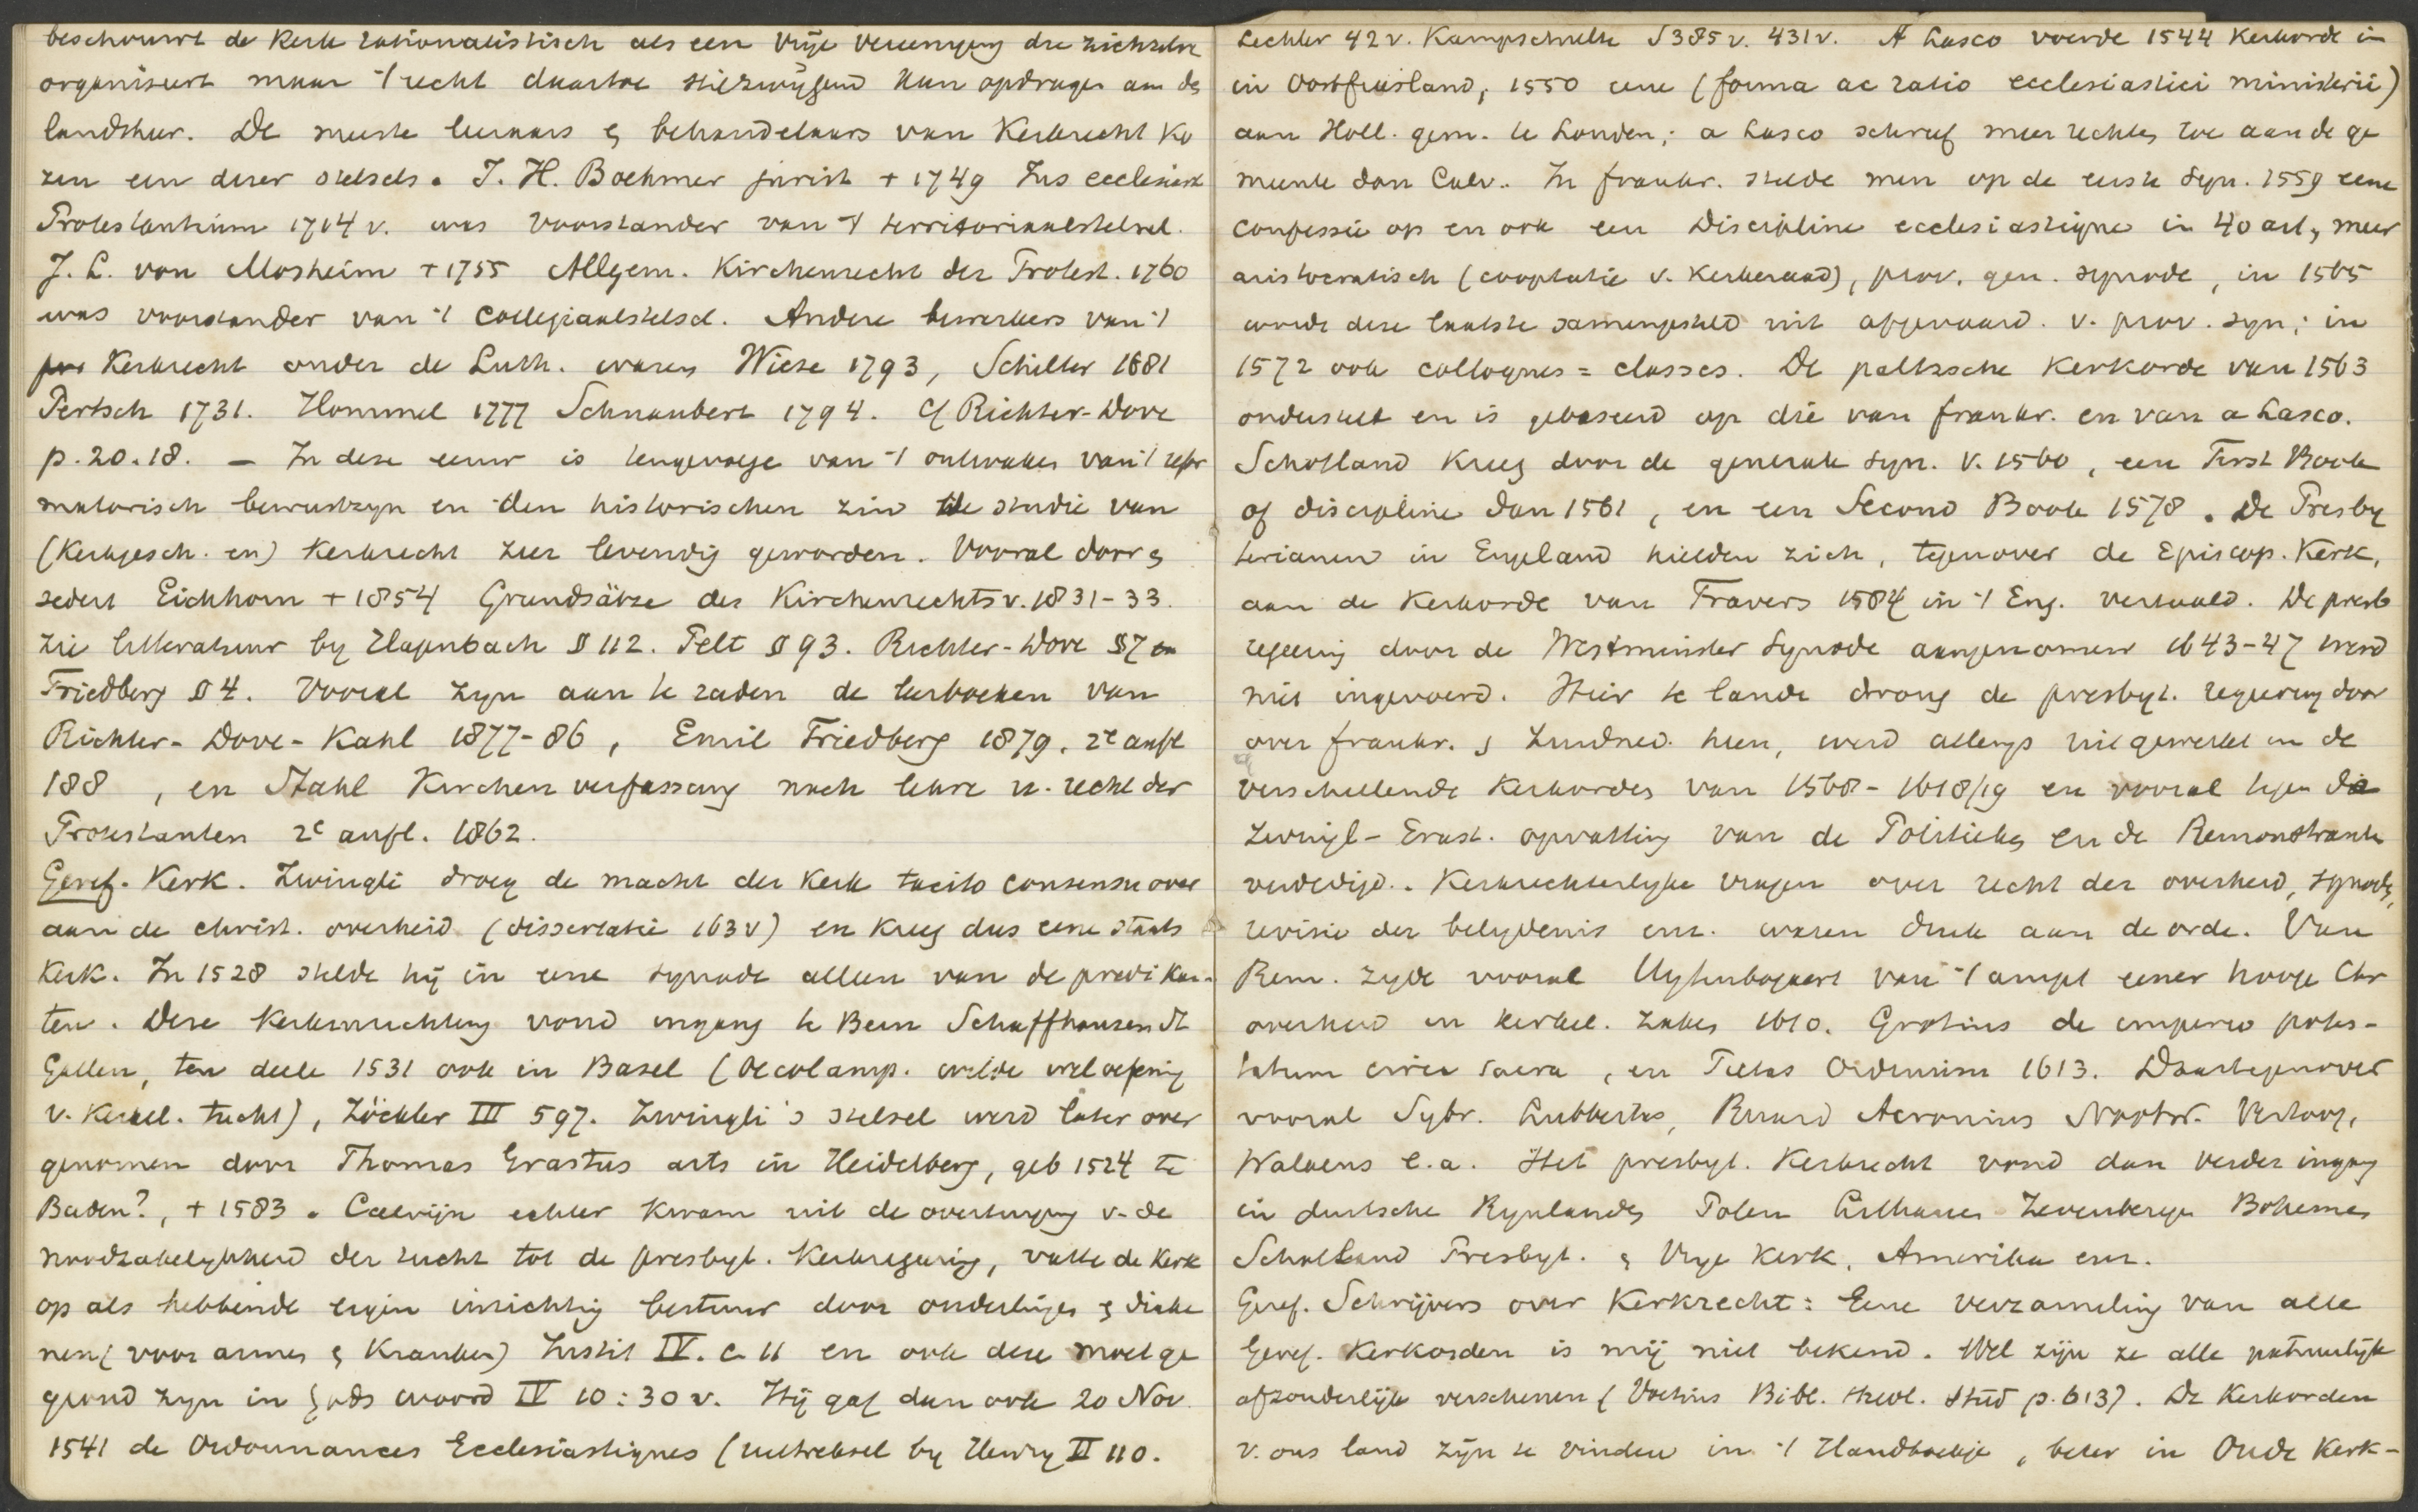 beschouwt de Kerk rationalistisch als een vrije vereeniging die zichzelve
organiseert maar 't recht daartoe stilzwijgend kan opdragen aan de
landsheer. De meeste leeraars & behandelaars van Kerkrecht ko
zen een dezer stelsels. J. H. Boehmer jurist + 1749 Jus ecclesiast
Protestantium 1714 v. was voorstander van 't territoriaalstelsel.
J. L. von Mosheim + 1755 Allgem. Kirchenrecht der Protest. 1760
was voorstander van 't Collegiaalstelsel. Andere bewerkers van 't
Kerkrecht onder de Luth. waren Wiese 1793, Schilter 1681
Pertsch 1731. Hommel 1777 Schnaubert 1794. Cf Richter-Dove
p. 20.18. — In deze eeuw is tengevolge van 't ontwaken van 't refor
matorisch bewustzyn en den historischen zin de studie van
(Kerkgesch. en) Kerkrecht zeer levendig geworden. Vooral door &
sedert Eichhorn + 1854 Grundsätze des Kirchenrechts v. 1831-33.
Zie litteratuur by Hagenbach § 112. Pelt § 93. Richter-Dove § 7 en
Friedberg § 4. Vooral zyn aan te raden de leerboeken van
Richter-Dove-Kahl 1877-86, Emil Friedberg 1879. 2e aufl
188 , en Stahl Kirchenverfassung nach lehre u. recht der
Protestanten 2e aufl. 1862.
Geref. Kerk. Zwingli droeg de macht der Kerk tacito consensu over
aan de christ. overheid (dissertatie 163 v) en kreeg dus eene staats
Kerk. In 1528 stelde hij in eene synode alleen van de predikan-
ten. Deze Kerkinrichting vond ingang te Bern Schaffhausen St
Gallen, ten deele 1531 ook in Basel (Oecolamp. wilde wel oefening
v. Kerkel. tucht), Zöckler III 597. Zwingli's stelsel werd later over
genomen door Thomas Erastus arts in Heidelberg, geb 1524 te
Baden?, + 1583. Calvijn echter kwam uit de overtuiging v. de
noodzakelykheid der tucht tot de presbyt. Kerkregeering, vatte de Kerk
op als hebbende eigen inrichting bestuur door ouderlingen & diake
nen (voor armen & Kranken) Instit IV. c. 11 en ook deze moet ge
grond zyn in Gods woord IV 10:30 v. Hij gaf dan ook 20 Nov.
1541 de Ordonnances Ecclesiastiques (uittreksel by Henry II 110.
Lechler 42 v. Kampschulte S 385 v. 431 v. A Lasco voerde 1544 Kerkorde in
in Oostfriesland, 1550 eene (forma ac ratio ecclesiastici ministerii)
aan Holl. gem. te Londen; a Lasco schreef meer rechten toe aan de ge
meente dan Calv.. In frankr. stelde men op de eerste Syn. 1559 eene
confessie op en ook een Discipline ecclesiastique in 40 art, meer
aristocratisch (cooptatie v. Kerkeraad), prov. gen. synode, in 1565
werd deze laatste samengesteld uit afgevaard. v. prov. syn; in
1572 ook colloques = classes. De paltzsche Kerkorde van 1563
onderstelt en is gebaseerd op die van frankr. en van a Lasco.
Schotland Kreeg door de generale syn. v. 1560, een First Book
of discipline Jan 1561, en een Second Book 1578. De Presby
terianen in Engeland hielden zich, tegenover de Episcop. Kerk,
aan de Kerkorde van Travers 1584 in 't Eng. vertaald. De presb
regeering door de Westminster Synode aangenomen 1643-47 werd
niet ingevoerd. Hier te lande drong de presbyt. regeering door
over frankr. & Zuidned. heen, werd allengs uitgewerkt in de
verschillende Kerkordes van 1568-1618/19 en vooral tegen de
Zwingl-Erast. opvatting van de Politieken en de Remonstranten
verdedigd. Kerkrechterlyke vragen over recht der overheid, synode,
revisie der belydenis enz. waren druk aan de orde. Van
Rem. zyde vooral Uytenbogaert van 't ampt eener hooge Chr
overheid in kerkel. zaken 1610. Grotius de imperio potes-
tatum circa sacra, en Pietas Ordinum 1613. Daartegenover
vooral Sybr. Lubbertus, Ruard Acronius Nootw. Vertoog,
Walaeus e.a. Het presbyt. Kerkrecht vond dan verder ingang
in duitsche Rynlanden Polen Litthauen Zevenbergen Bohemen
Schotland Presbyt. & Vrye Kerk, Amerika enz.
Geref. Schrijvers over Kerkrecht: Eene verzameling van alle
Geref. Kerkorden is mij niet bekend. Wel zijn ze alle natuurlijk
afzonderlijk verschenen (Voetius Bibl. theol. stud p. 613). De Kerkorden
v. ons land zijn te vinden in 't Handboekje, beter in Oude Kerk-